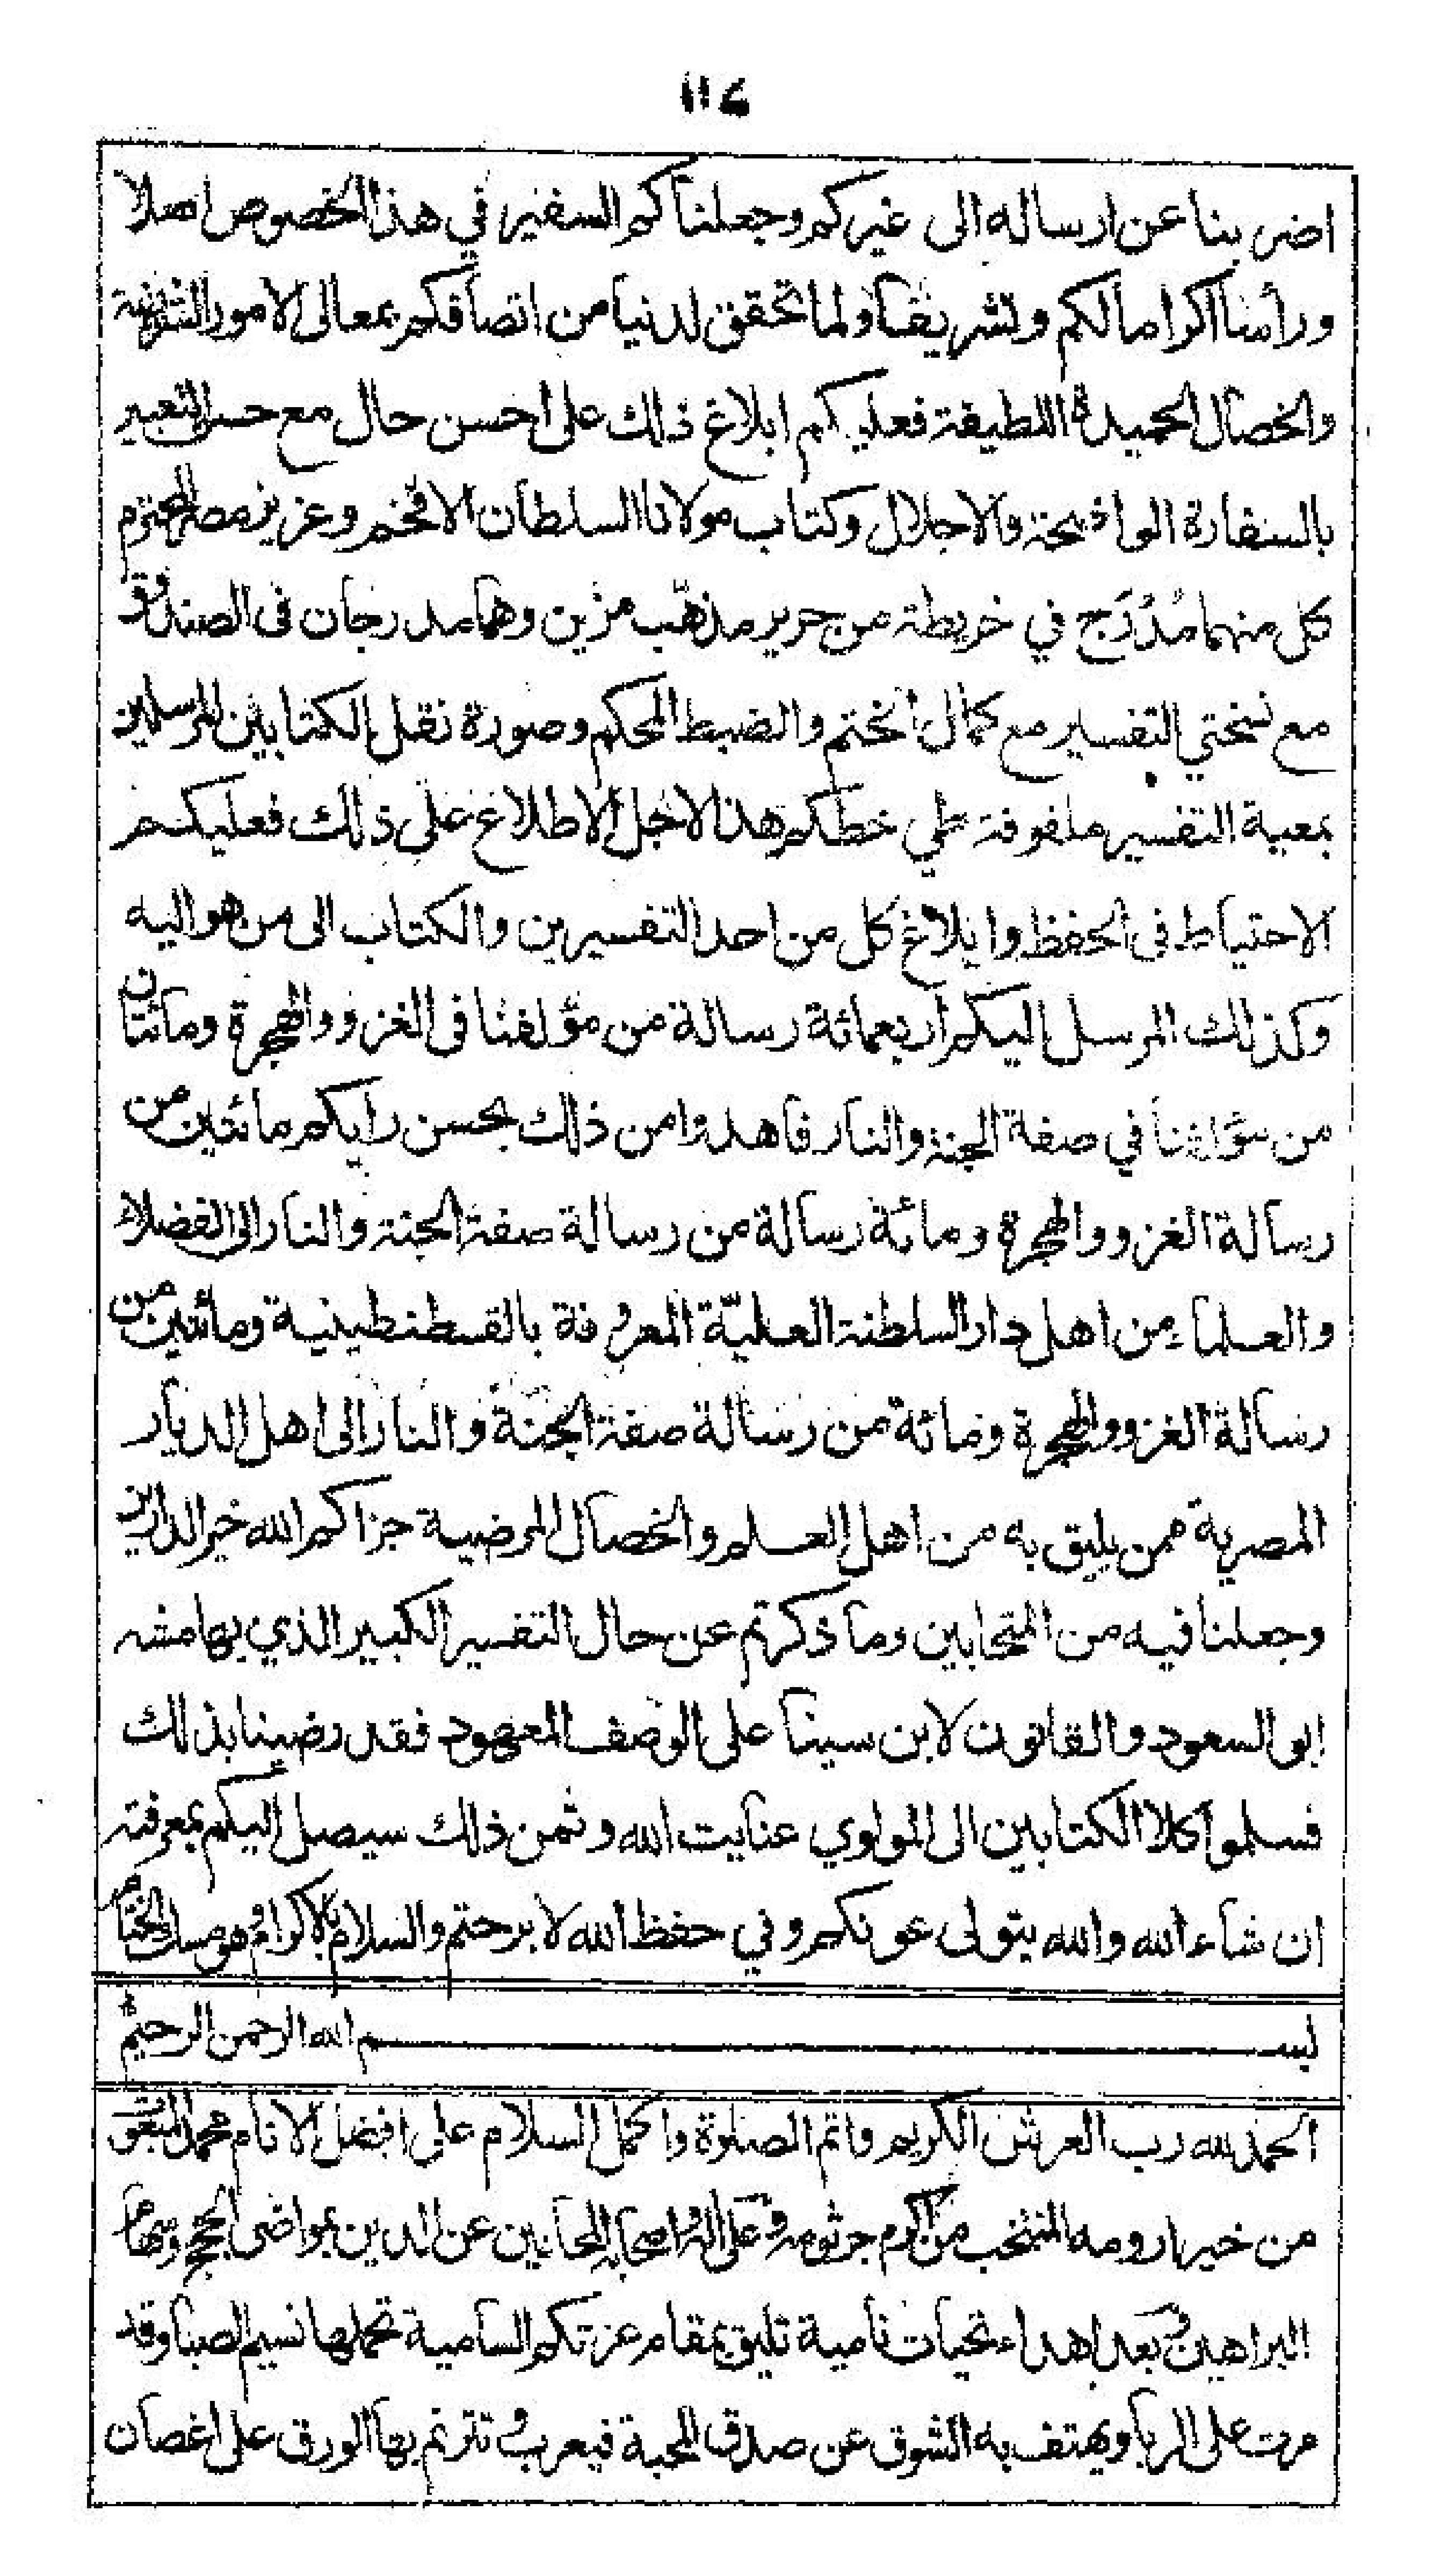 ۱۱۶
اضربنا عن ارساله الى غيركم وجعلناكم السفير في هذا الخصوص اصلا
ورأمنا اكراما لكم وتشريفا ولما تحقق لدنيا من اتصافكم بمعالى الامور الشريفة
والخصال الحميدة اللطيفة فعليكم ابلاغ ذلك على احسن حال مع حسن التعبير
بالسفارة الواضحة والاجلال وكتاب مولانا السلطان الافخم وعزيز مصر المحترم
كل منهما مُدْرَج في خريطة من حرير مذهّب مزين وهما مدرجان فى الصندوق
مع نسختي التفسير مع كمال الختم والضبط المحكم وصورة نقل الكتابين المرسلين
بمعية التفسير ملفوفة طي خطكم هذا لاجل الاطلاع على ذلك فعليكم
الاحتياط فى الحفظ وابلاغ كل من احد التفسيرين والكتاب الى من هو اليه
وكذلك المرسل اليكم اربعمائة رسالة من مؤلفنا فى الغزو والهجرة ومائتان
من مؤلفنا في صفة الجنة والنار فاهدوا من ذلك بحسن رايكم مائتين من
رسالة الغزو والهجرة ومائة رسالة من رسالة صفة الجنة والنار الى الفضلاء
والعلماء من اهل دار السلطنة العليّة المعروفة بالقسطنطينية ومائتين من
رسالة الغزو والهجرة ومائة من رسالة صفة الجنة والنار الى اهل الديار
المصرية ممن يليق به من اهل العلم والخصال المرضية جزاكم الله خير الدارين
وجعلنا فيه من المتحابين وما ذكرتم عن حال التفسير الكبير الذي بهامشه
ابو السعود والقانون لابن سينا على الوصف المعهود فقد رضينا بذلك
فسلموا كلا الكتابين الى المولوي عنايت الله وثمن ذلك سيصل اليكم بمعرفته
ان شاء الله والله يتولى عونكم وفي حفظ الله لا برحتم والسلام بالاكرام هو مسك الختام
بسم الله الرحمن الرحيم
الحمد لله رب العرش الكريم واتم الصلوة واكمل السلام على افضل الانام محمد المنتقى
من خير ارومه المنتخب من اكرم جرثومه وعلى اله واصحابه المحابين عن الدين بمواضى الحجج وسهام
البراهين وبعد اهداء تحيات نامية تليق بمقام عزتكم السامية تحملها نسيم الصبا وقد
مرت على الربا ويهتف به الشوق عن صدق المحبة فيعرب وتترنم بها الورق على اغصان